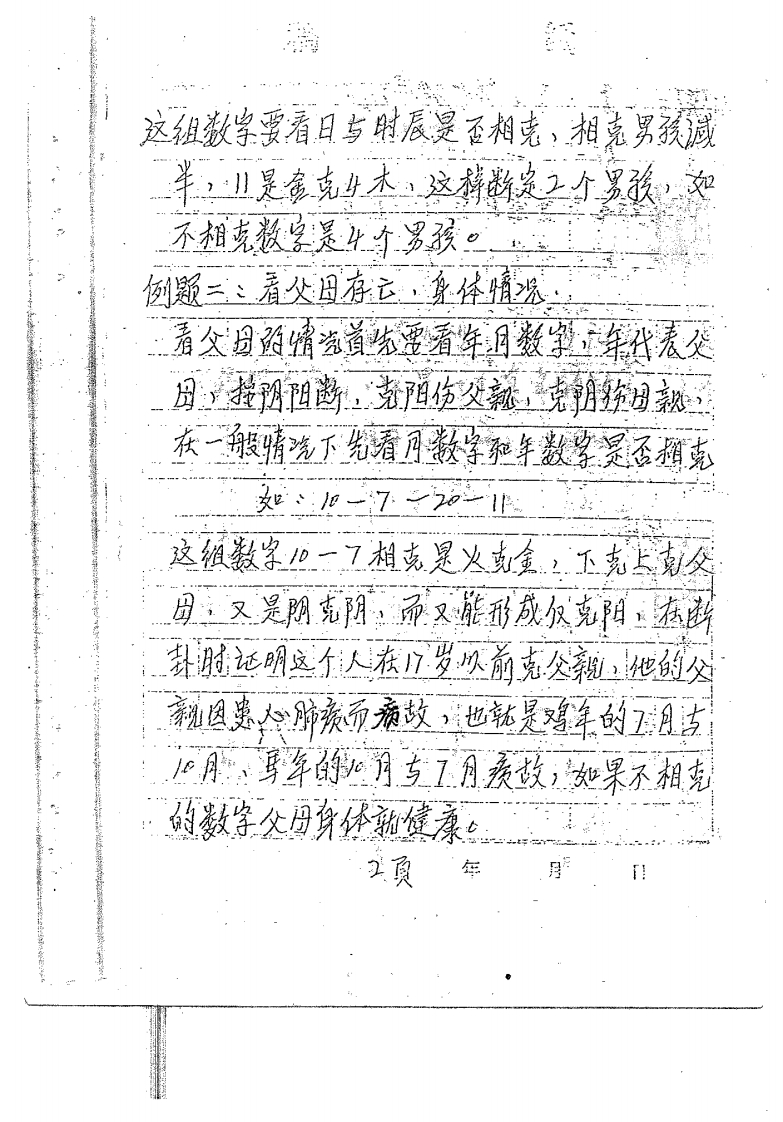 稿 纸
这组数字要看日与时辰是否相克、相克男孩减
半，11是金克4木、这样断定2个男孩，如
不相克数字是4个男孩。
例题二：看父母存亡、身体情况.
看父母的情况首先要看年月数字，年代表父
母，按阴阳断，克阳伤父亲，克阴伤母亲，
在一般情况下先看月数字和年数字是否相克
如：10－7－20－11
这组数字10－7相克是火克金，下克上克父
母，又是阴克阴，而又能形成仅克阳，在断
卦时证明这个人在17岁以前克父亲，他的父
亲因患 肺病而病故，也就是鸡年的7月与
10月、马年的10月与7月病故，如果不相克
的数字父母身体就健康。
2页 年 月 日